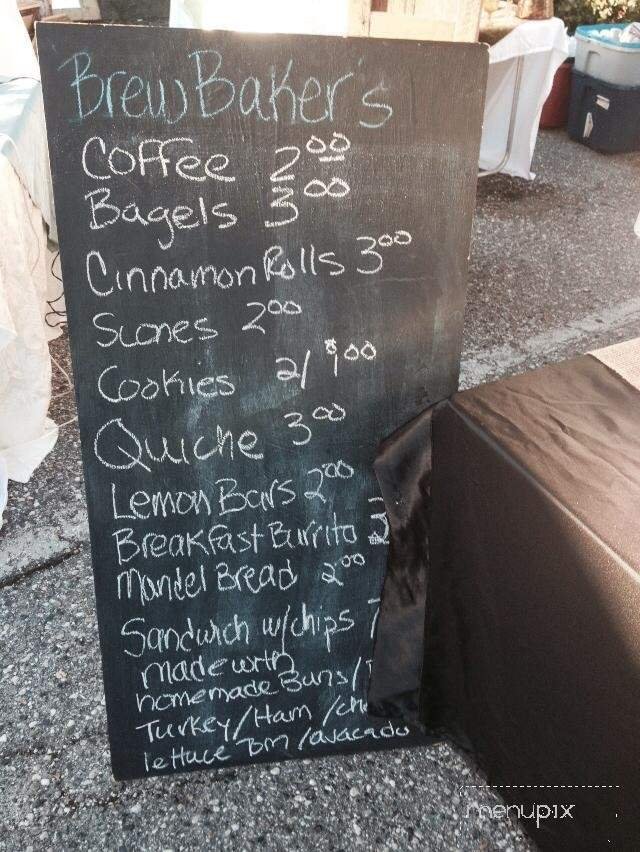 BrewBaker's
Coffee 2.00
Bagels 3.00
Cinnamon Rolls 3.00
Scones 2.00
Cookies 2/$1.00
Quiche 3.00
Lemon Bars 2.00
Breakfast Burrito
Mandel Bread 2.00
Sandwich w/chips
made with
homemade Buns/
Turkey/Ham/ch
lettuce Tom/avacado
menupix